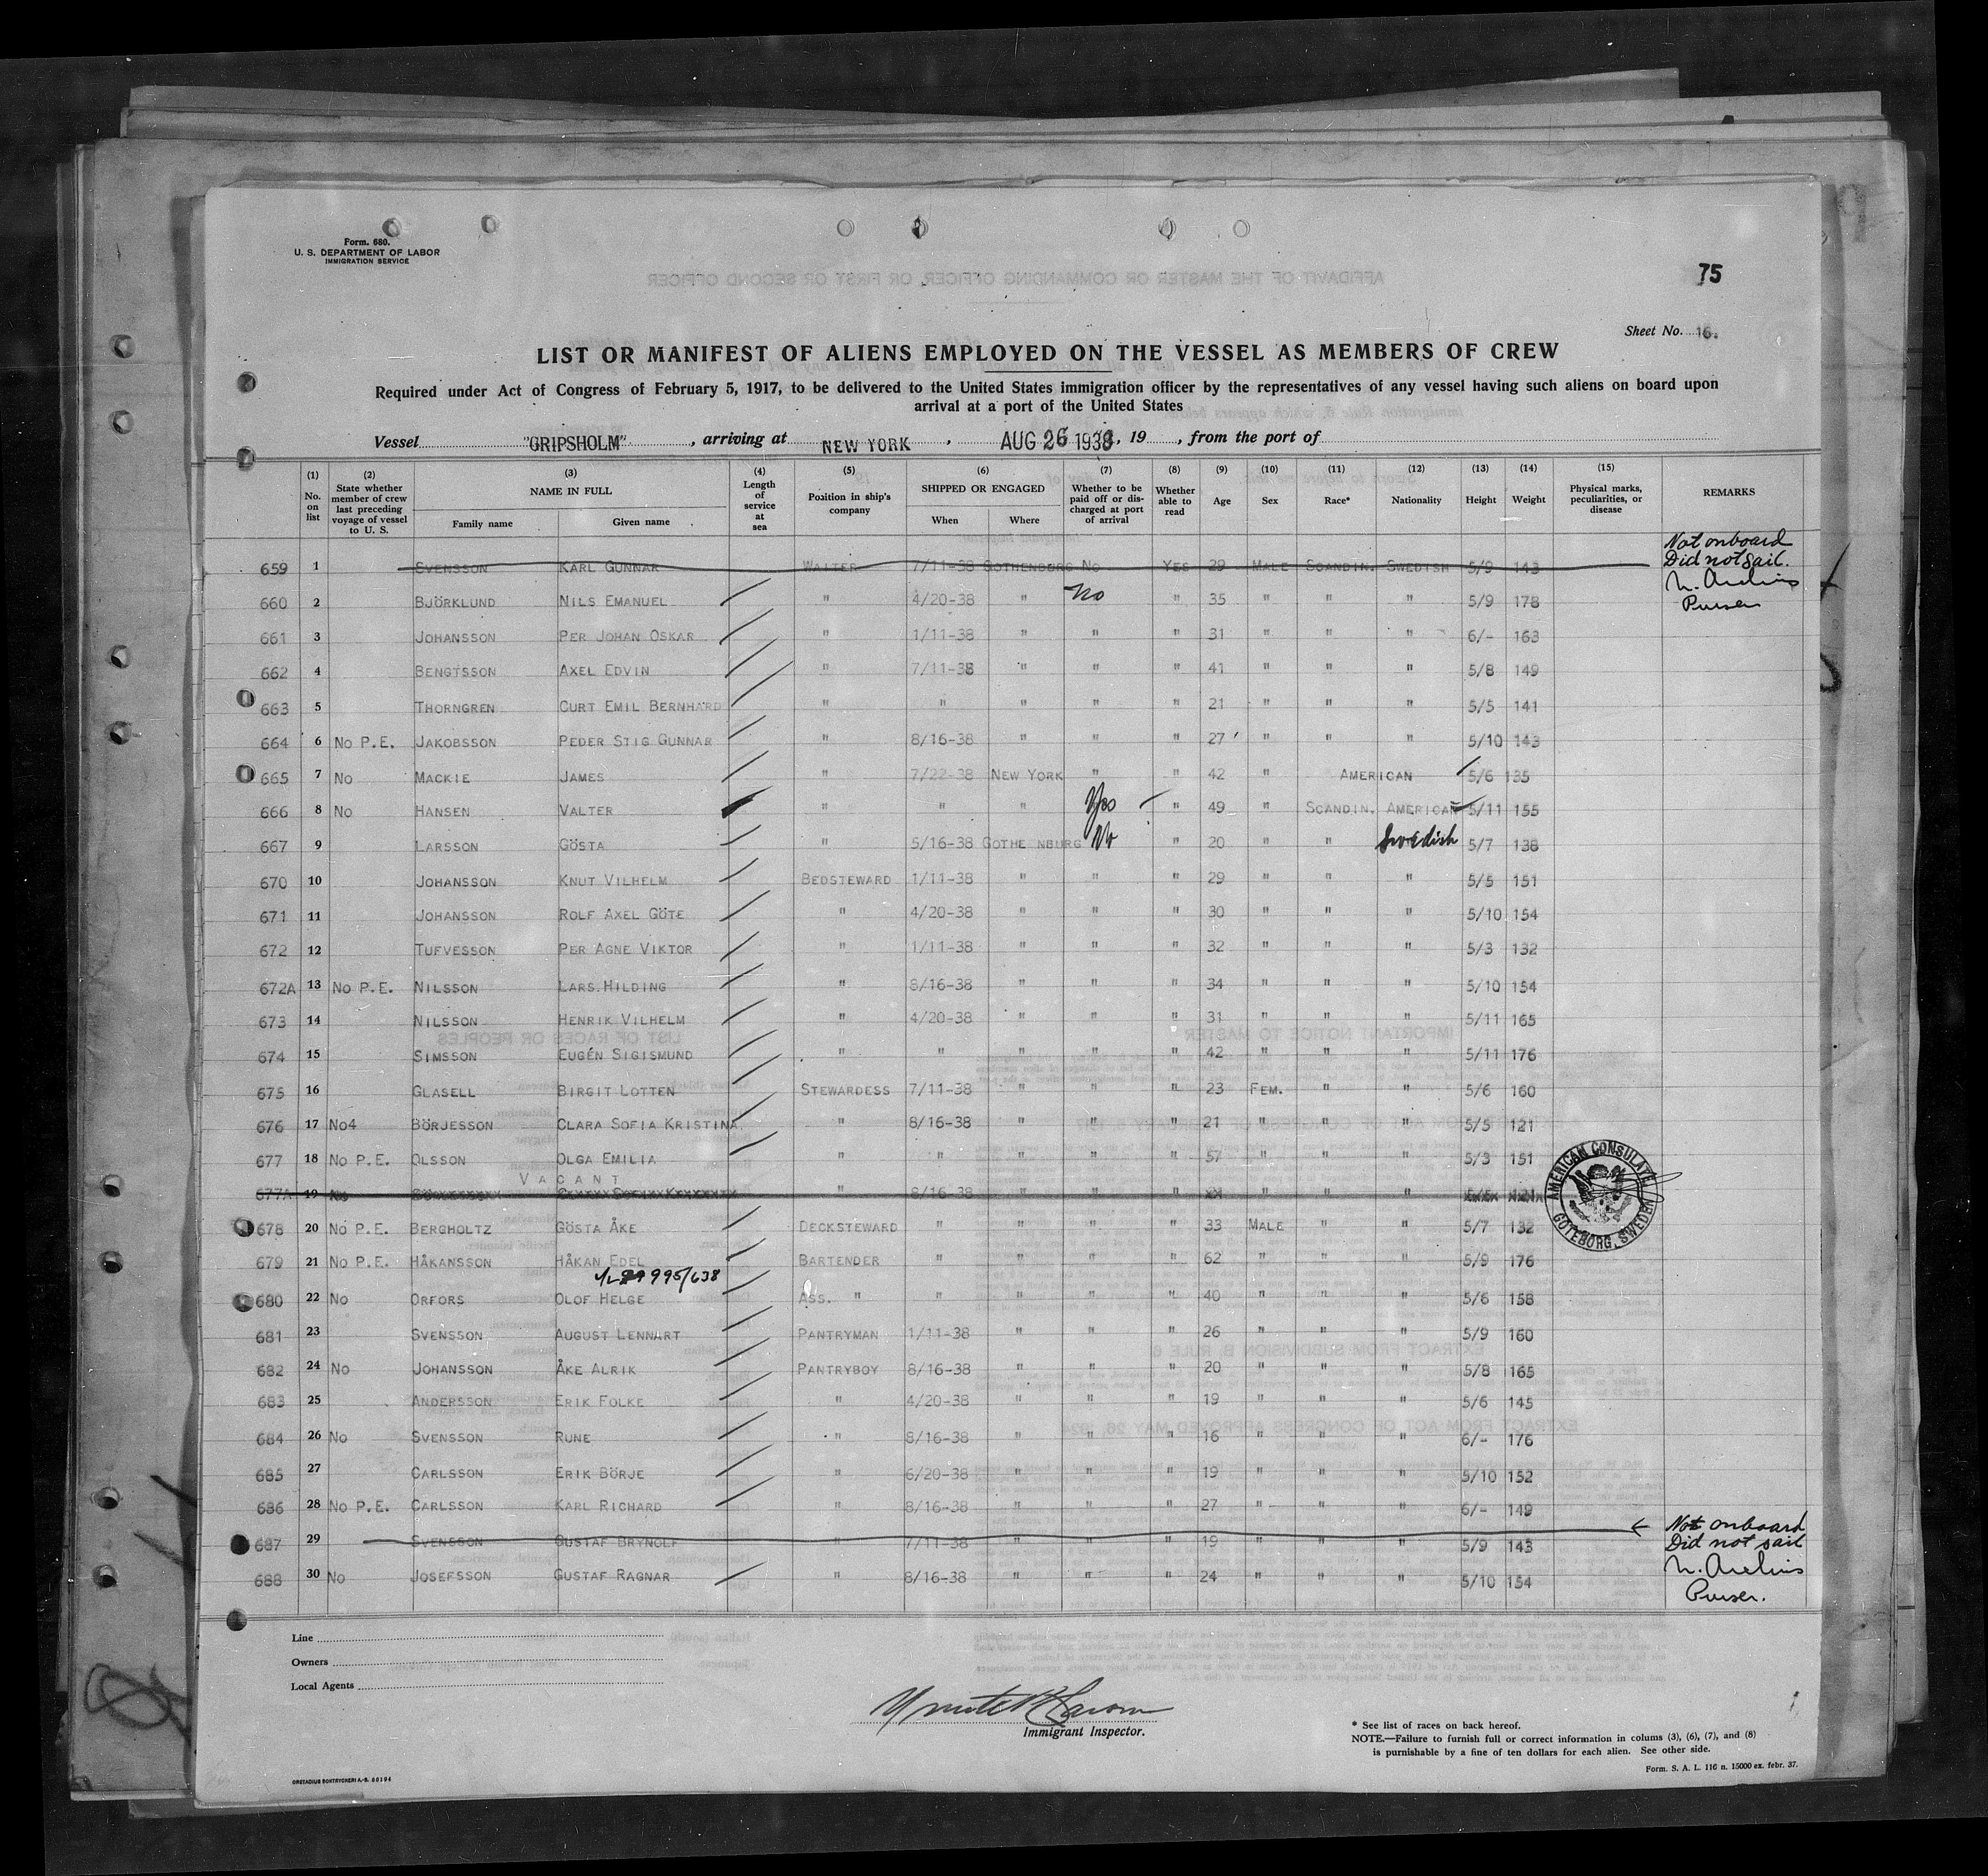 Form. 680.
U. S. DEPARTMENT OF LABOR
IMMIGRATION SERVICE
75
Sheet No. 16.
LIST OR MANIFEST OF ALIENS EMPLOYED ON THE VESSEL AS MEMBERS OF CREW
Required under Act of Congress of February 5, 1917, to be delivered to the United States immigration officer by the representatives of any vessel having such aliens on board upon
arrival at a port of the United States
Vessel "GRIPSHOLM", arriving at NEW YORK, AUG 26 1938, 19, from the port of
(1) No. on list (2) State whether member of crew last preceding voyage of vessel to U. S. (3) NAME IN FULL Family name Given name (4) Length of service at sea (5) Position in ship's company (6) SHIPPED OR ENGAGED When Where (7) Whether to be paid off or discharged at port of arrival (8) Whether able to read (9) Age (10) Sex (11) Race* (12) Nationality (13) Height (14) Weight (15) Physical marks, peculiarities, or disease REMARKS
659 1 SVENSSON KARL GUNNAR WAITER 7/11-38 GOTHENBURG NO YES 29 MALE SCANDIN. SWEDISH 5/9 143 Not onboard Did not sail.
660 2 BJÖRKLUND NILS EMANUEL " 4/20-38 " No " 35 " " " 5/9 178 Purser
661 3 JOHANSSON PER JOHAN OSKAR " 1/11-38 " " " 31 " " " 6/- 163
662 4 BENGTSSON AXEL EDVIN " 7/11-38 " " " 41 " " " 5/8 149
663 5 THORNGREN CURT EMIL BERNHARD " " " " " 21 " " " 5/5 141
664 6 NO P.E. JAKOBSSON PEDER STIG GUNNAR " 8/16-38 " " " 27 " " " 5/10 143
665 7 NO MACKIE JAMES " 7/22-38 NEW YORK " " 42 " AMERICAN 5/6 135
666 8 NO HANSEN VALTER " " " Yes " 49 " SCANDIN. AMERICAN 5/11 155
667 9 LARSSON GÖSTA " 5/16-38 GOTHENBURG No " 20 " " Swedish 5/7 138
670 10 JOHANSSON KNUT VILHELM BEDSTEWARD 1/11-38 " " " 29 " " " 5/5 151
671 11 JOHANSSON ROLF AXEL GÖTE " 4/20-38 " " " 30 " " " 5/10 154
672 12 TUFVESSON PER AGNE VIKTOR " 1/11-38 " " " 32 " " " 5/3 132
672A 13 NO P.E. NILSSON LARS HILDING " 8/16-38 " " " 34 " " " 5/10 154
673 14 NILSSON HENRIK VILHELM " 4/20-38 " " " 31 " " " 5/11 165
674 15 SIMSSON EUGÉN SIGISMUND " " " " " 42 " " " 5/11 176
675 16 GLASELL BIRGIT LOTTEN STEWARDESS 7/11-38 " " " 23 FEM. " " 5/6 160
676 17 NO4 BÖRJESSON CLARA SOFIA KRISTINA " 8/16-38 " " " 21 " " " 5/5 121
677 18 NO P.E. OLSSON OLGA EMILIA " " " " " 57 " " " 5/3 151
VACANT
677A 19 NO " 8/16-38 " " " " " "
678 20 NO P.E. BERGHOLTZ GÖSTA ÅKE DECKSTEWARD " " " " 33 MALE " " 5/7 132
AMERICAN CONSULATE GÖTEBORG, SWEDEN
679 21 NO P.E. HÅKANSSON HÅKAN EDEL BARTENDER " " " " 62 " " " 5/9 176
995/638
680 22 NO ORFORS OLOF HELGE ASS. " " " " " 40 " " " 5/6 158
681 23 SVENSSON AUGUST LENNART PANTRYMAN 1/11-38 " " " 26 " " " 5/9 160
682 24 NO JOHANSSON ÅKE ALRIK PANTRYBOY 8/16-38 " " " 20 " " " 5/8 165
683 25 ANDERSSON ERIK FOLKE " 4/20-38 " " " 19 " " " 5/6 145
684 26 NO SVENSSON RUNE " 8/16-38 " " " 16 " " " 6/- 176
685 27 CARLSSON ERIK BÖRJE " 6/20-38 " " " 19 " " " 5/10 152
686 28 NO P.E. CARLSSON KARL RICHARD " 8/16-38 " " " 27 " " " 6/- 149
687 29 SVENSSON GUSTAF BRYNOLF " 7/11-38 " " " 19 " " " 5/9 143 Not onboard Did not sail
688 30 NO JOSEFSSON GUSTAF RAGNAR " 8/16-38 " " " 24 " " " 5/10 154 Purser.
Line
Owners
Local Agents
Immigrant Inspector.
* See list of races on back hereof.
NOTE.—Failure to furnish full or correct information in colums (3), (6), (7), and (8)
is punishable by a fine of ten dollars for each alien. See other side.
Form. S. A. L. 116 n. 15000 ex. febr. 37.